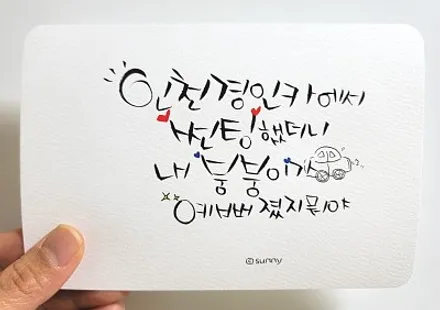 인천경인카에서
썬팅했더니
내 붕붕이가
예뻐졌지뭐야
ⓒsunny